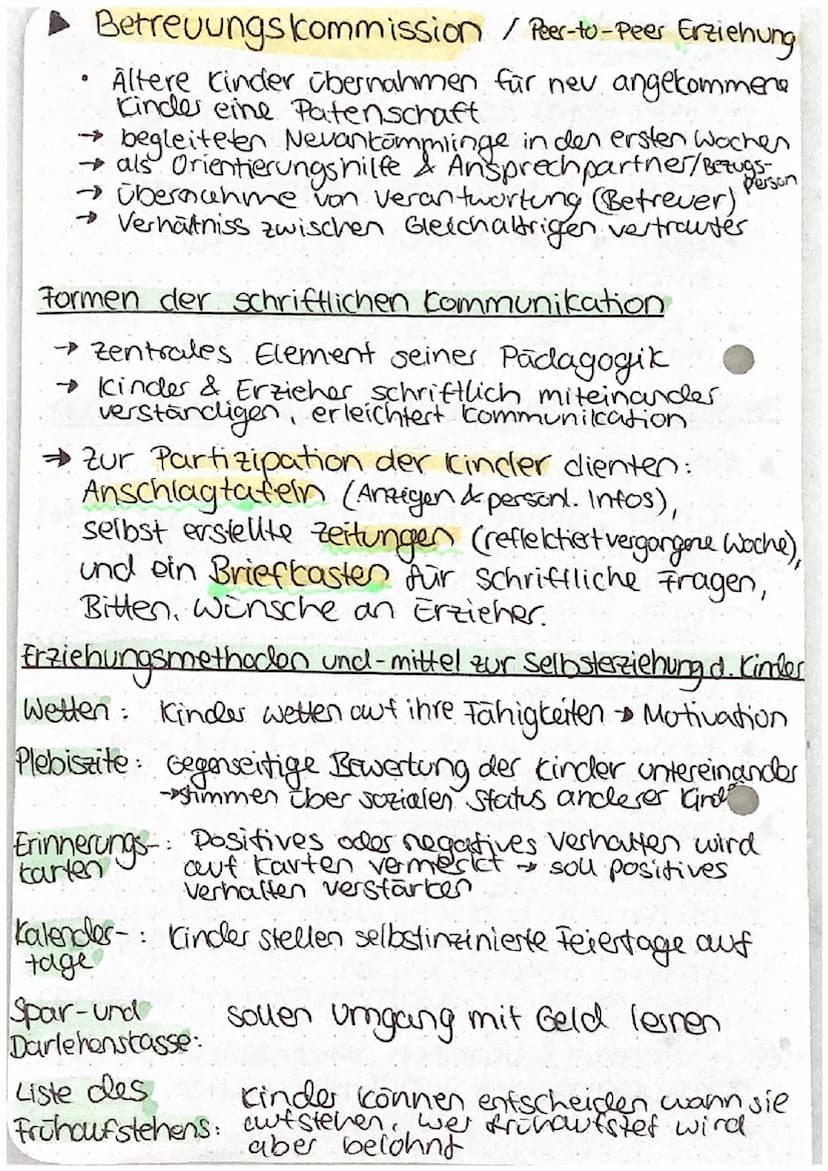 ▶ Betreuungskommission / Peer-to-Peer Erziehung
• Ältere Kinder übernahmen für neu angekommene
Kinder eine Patenschaft
→ begleiteten Neuankömmlinge in den ersten Wochen
→ als Orientierungshilfe & Ansprechpartner/Bezugs-
person
→ übernahme von Verantwortung (Betreuer)
→ Verhältniss zwischen Gleichaltrigen vertrauter
Formen der schriftlichen Kommunikation
→ zentrales Element seiner Pädagogik
→ Kinder & Erzieher schriftlich miteinander
verständigen, erleichtert Kommunikation
⇒ Zur Partizipation der Kinder dienten:
Anschlagtafeln (Anzeigen & persönl. Infos),
selbst erstellte Zeitungen (reflektiert vergangene Woche),
und ein Briefkasten für schriftliche Fragen,
Bitten, Wünsche an Erzieher.
Erziehungsmethoden und -mittel zur Selbsterziehung d. Kinder
Wetten: Kinder wetten auf ihre Fähigkeiten → Motivation
Plebiszite: Gegenseitige Bewertung der Kinder untereinander
→ stimmen über sozialen Status anderer
Erinnerungs-: Positives oder negatives Verhalten wird
karten auf Karten vermerkt → soll positives
Verhalten verstärken
Kalender-: Kinder stellen selbstinzinierte Feiertage auf
tage
Spar- und sollen Umgang mit Geld lernen
Darlehenskasse:
Liste des Kinder können entscheiden wann sie
Frühaufstehens: aufstehen, wer frühaufstef wird
aber belohnt